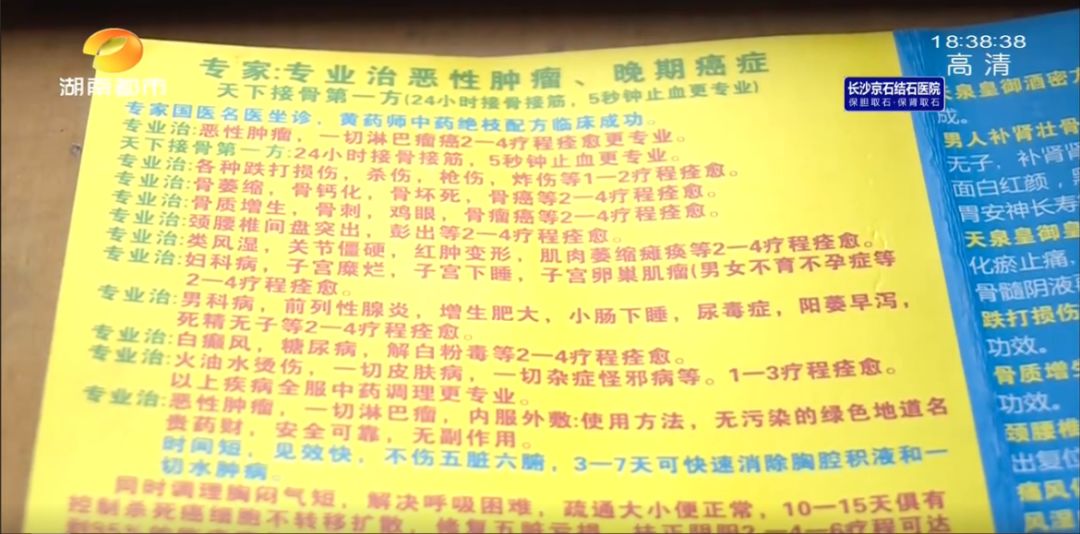 湖南都市
18:38:38
高清
长沙京石结石医院
保胆取石·保肾取石
专家:专业治恶性肿瘤、晚期癌症
天下接骨第一方(24小时接骨接筋，5秒钟止血更专业)
专家国医名医坐诊，黄药师中药绝枝配方临床成功。
专业治:恶性肿瘤，一切淋巴瘤癌2—4疗程痊愈更专业。
天下接骨第一方:24小时接骨接筋，5秒钟止血更专业。
专业治:各种跌打损伤，杀伤，枪伤，炸伤等1—2疗程痊愈。
专业治:骨萎缩，骨钙化，骨坏死，骨癌等2—4疗程痊愈。
专业治:骨质增生，骨刺，鸡眼，骨瘤癌等2—4疗程痊愈。
专业治:颈腰椎间盘突出，彭出等2—4疗程痊愈。
专业治:类风湿，关节僵硬，红肿变形，肌肉萎缩瘫痪等2—4疗程痊愈。
专业治:妇科病，子宫糜烂，子宫下睡，子宫卵巢肌瘤(男女不育不孕症等
2—4疗程痊愈。
专业治:男科病，前列性腺炎，增生肥大，小肠下睡，尿毒症，阳萎早泻，
死精无子等2—4疗程痊愈。
专业治:白癫风，糖尿病，解白粉毒等2—4疗程痊愈。
专业治:火油水烫伤，一切皮肤病，一切杂症怪邪病等。1—3疗程痊愈。
以上疾病全服中药调理更专业。
专业治:恶性肿瘤，一切淋巴瘤，内服外敷:使用方法，无污染的绿色地道名
贵药财，安全可靠，无副作用。
时间短，见效快，不伤五脏六腑，3—7天可快速消除胸腔积液和一
切水肿病。
同时调理胸闷气短，解决呼吸困难，疏通大小便正常，10—15天俱有
控制杀死癌细胞不转移扩散，修复五脏亏损，扶正阴阳2—4—6疗程可达
天泉皇御酒密方
成。
男人补肾壮骨
无子，补肾肾
面白红颜，
胃安神长寿
天泉皇御皇
化瘀止痛，
骨髓阴液
跌打损伤
功效。
骨质增生
功效。
颈腰椎
出复位
痛风
风湿